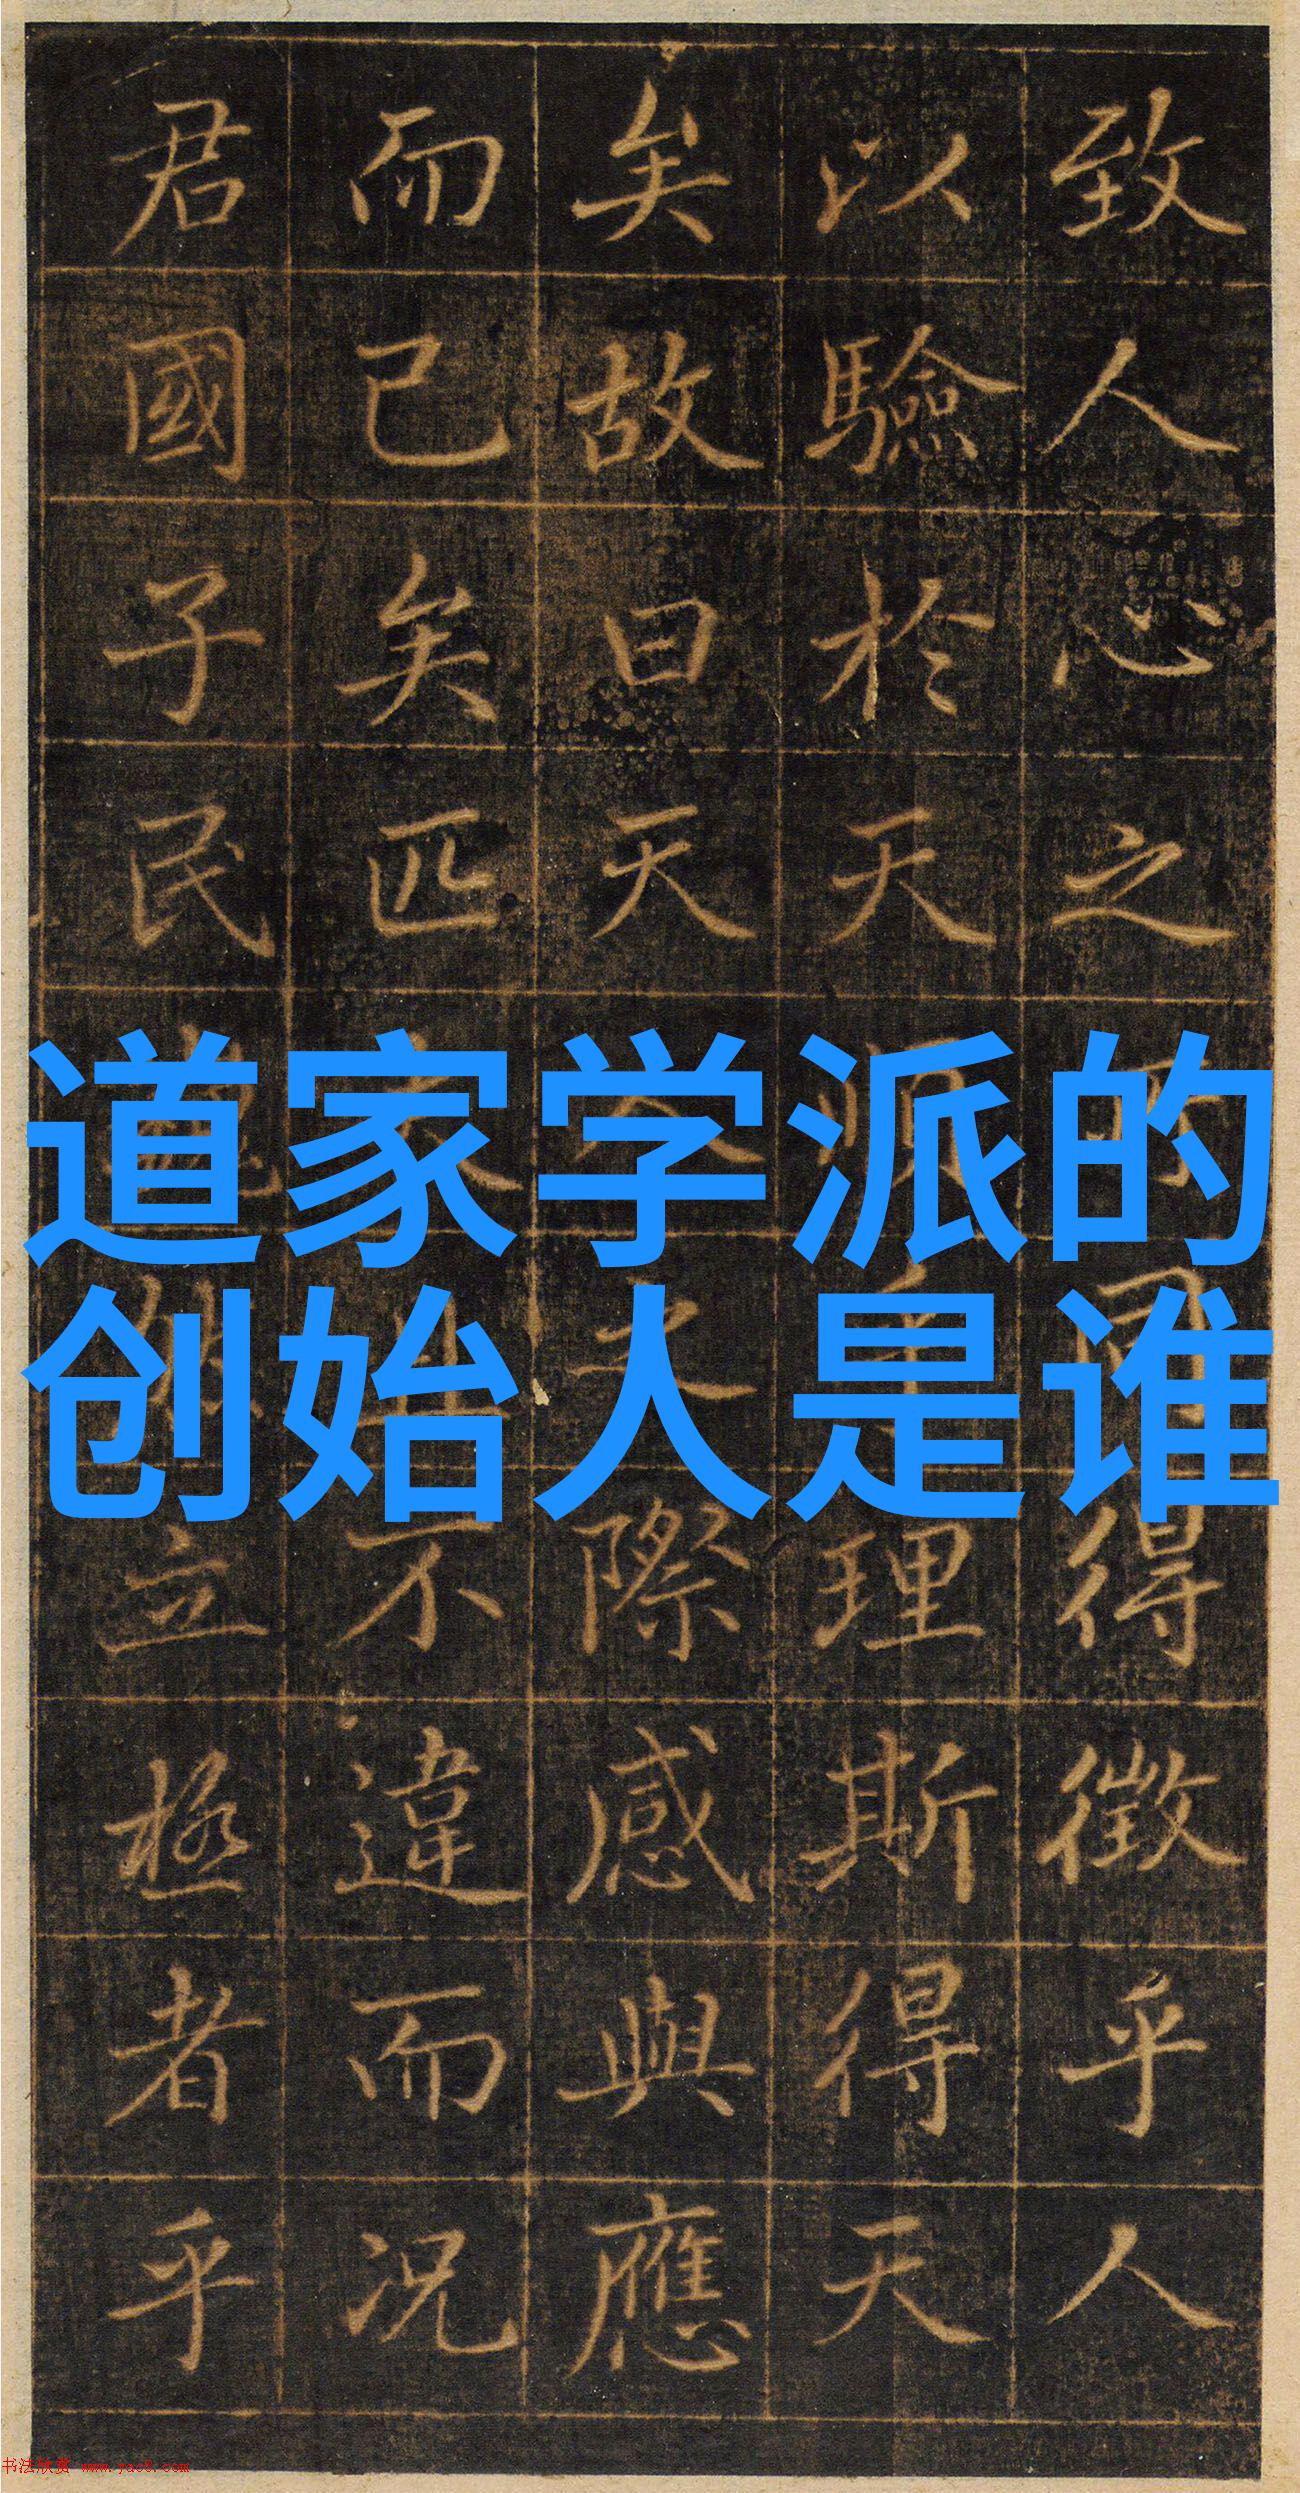 致人心之所同得徵乎人
以驗於天順理斯得天
矣故曰天人之際感與應
而已矣匹夫且不違而況
君國子民立極者乎
道家学派的
创始人是谁
书法欣赏 www.yac8.com